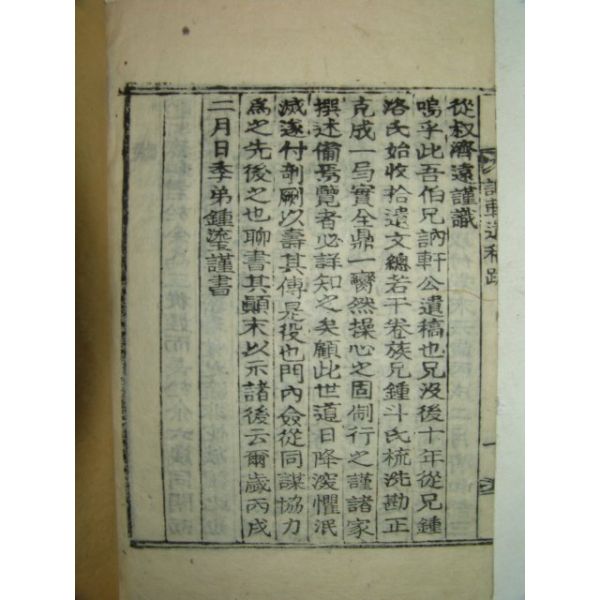 訥軒遺稿跋
從叔濟遠謹識
嗚乎此吾伯兄訥軒公遺稿也兄沒後十年從兄鍾
洛氏始收拾遺文總若干卷族兄鍾斗氏梳洗勘正
克成一局實全鼎一臠然操心之固制行之謹諸家
撰述備焉覽者必詳知之矣顧此世道日降深懼泯
滅遂付剞劂以壽其傳是役也門內僉從同謀協力
為之先後之也聊書其顚末以示諸後云爾歲丙戌
二月日季弟鍾瀅謹書